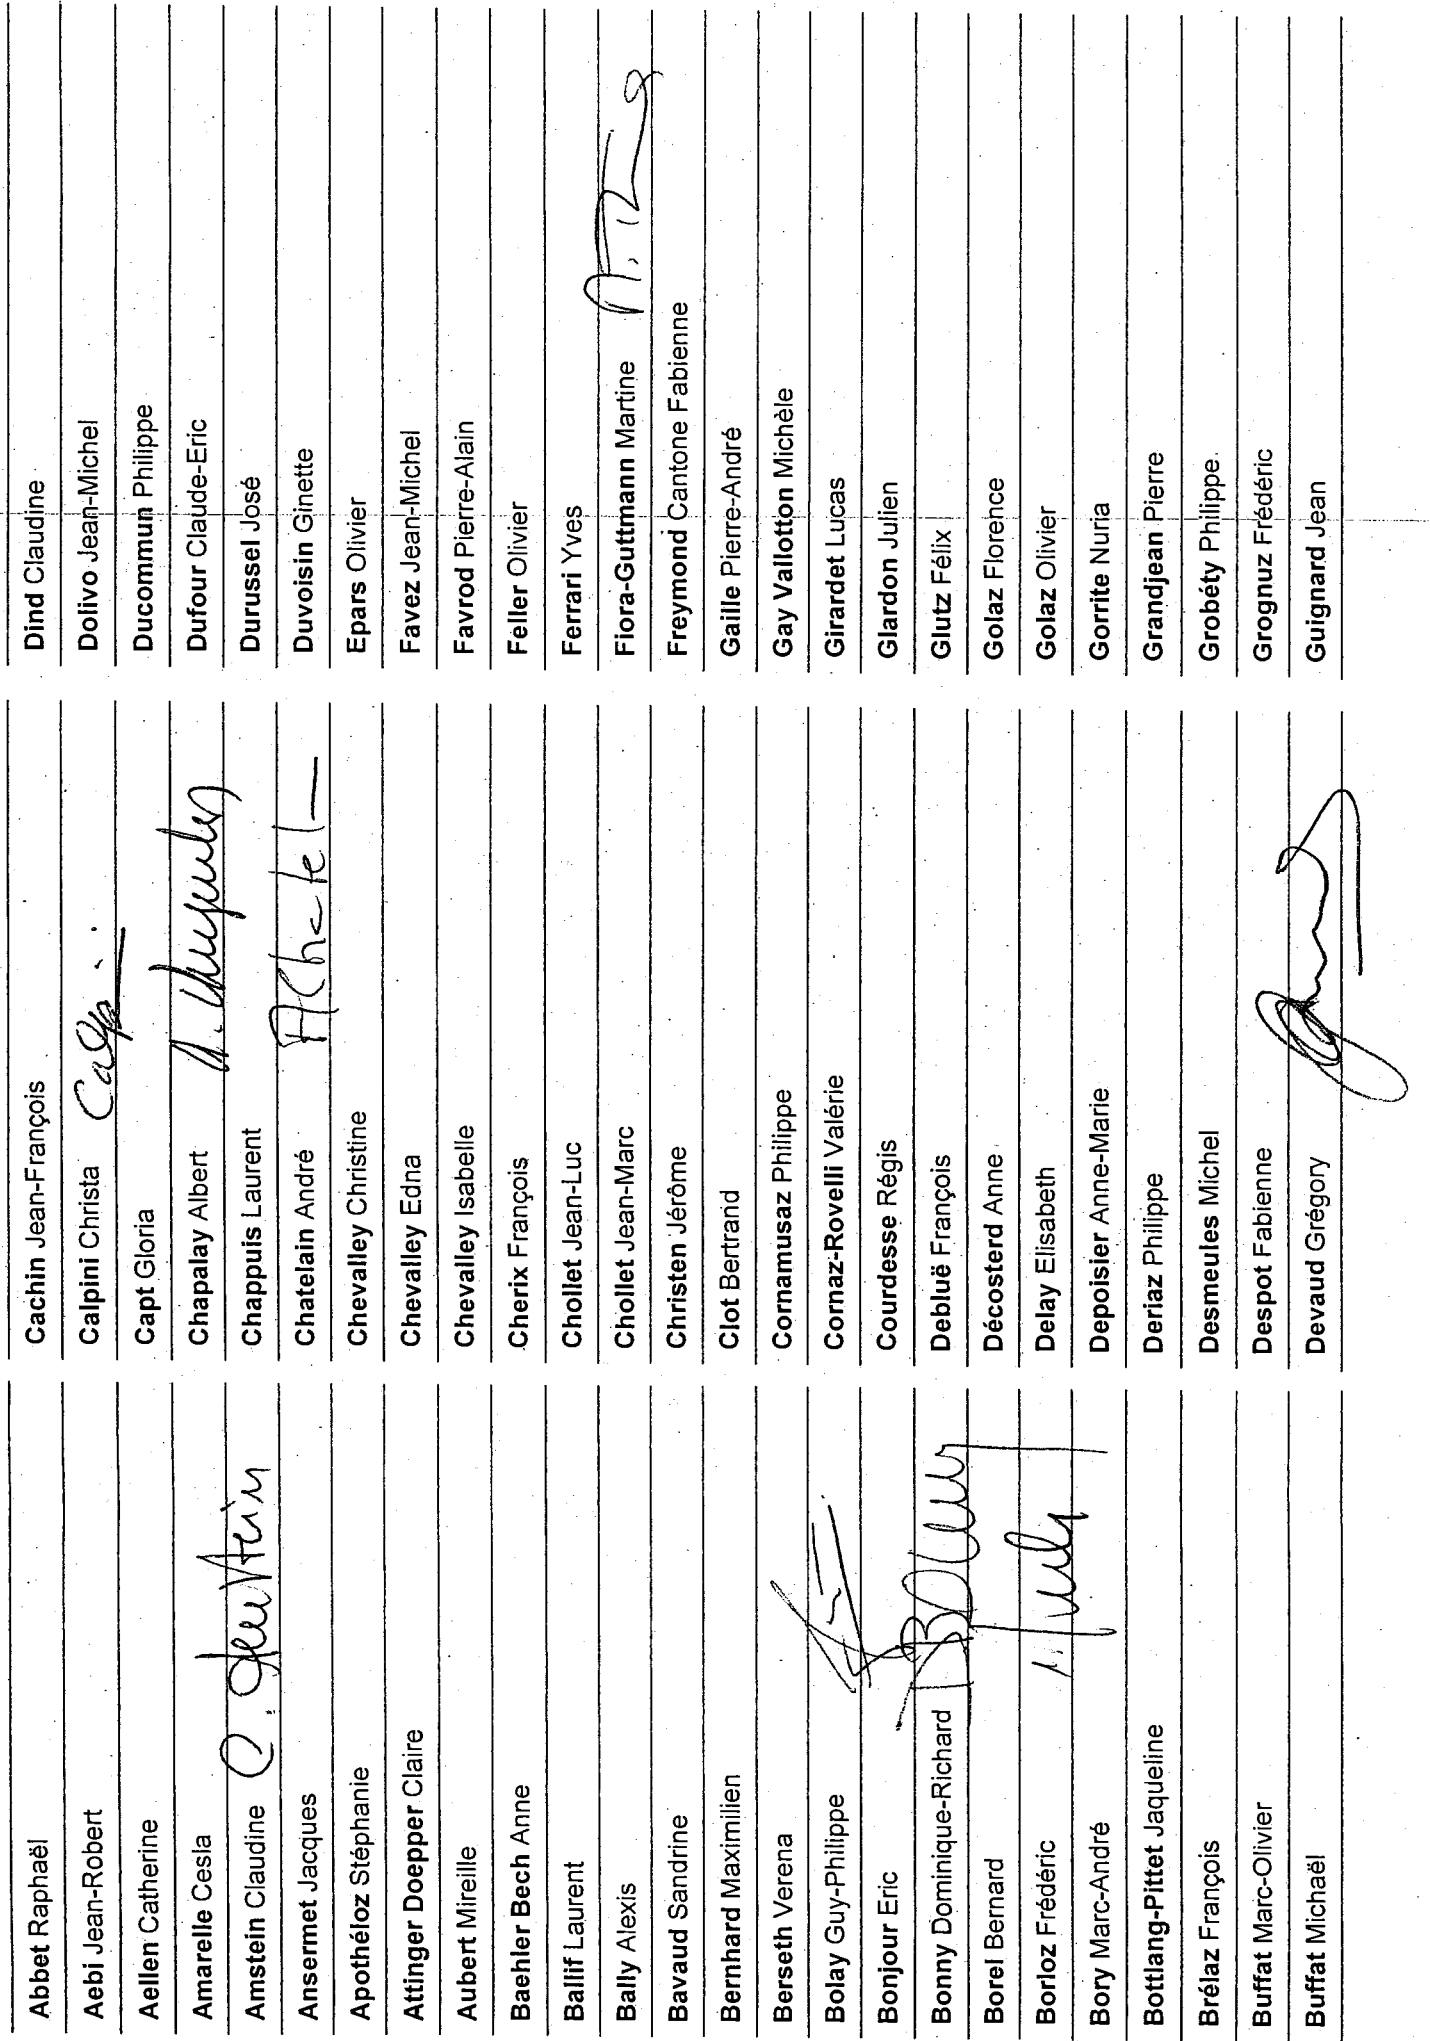 Abbet Raphaël
Aebi Jean-Robert
Aellen Catherine
Amarelle Cesla
Amstein Claudine C. Amstein
Ansermet Jacques
Apothéloz Stéphanie
Attinger Doepper Claire
Aubert Mireille
Baehler Bech Anne
Ballif Laurent
Bally Alexis
Bavaud Sandrine
Bernhard Maximilien
Berseth Verena
Bolay Guy-Philippe
Bonjour Eric
Bonny Dominique-Richard
Borel Bernard
Borloz Frédéric
Bory Marc-André
Bottlang-Pittet Jaqueline
Brélaz François
Buffat Marc-Olivier
Buffat Michaël
Cachin Jean-François
Calpini Christa
Capt Gloria
Chapalay Albert
Chappuis Laurent
Chatelain André
Chevalley Christine
Chevalley Edna
Chevalley Isabelle
Cherix François
Chollet Jean-Luc
Chollet Jean-Marc
Christen Jérôme
Clot Bertrand
Cornamusaz Philippe
Cornaz-Rovelli Valérie
Courdesse Régis
Debluë François
Décosterd Anne
Delay Elisabeth
Depoisier Anne-Marie
Deriaz Philippe
Desmeules Michel
Despot Fabienne
Devaud Grégory
Dind Claudine
Dolivo Jean-Michel
Ducommun Philippe
Dufour Claude-Eric
Durussel José
Duvoisin Ginette
Epars Olivier
Favez Jean-Michel
Favrod Pierre-Alain
Feller Olivier
Ferrari Yves
Fiora-Guttmann Martine
Freymond Cantone Fabienne
Gaille Pierre-André
Gay Vallotton Michèle
Girardet Lucas
Glardon Julien
Glutz Félix
Golaz Florence
Golaz Olivier
Gorrite Nuria
Grandjean Pierre
Grobéty Philippe
Grognuz Frédéric
Guignard Jean